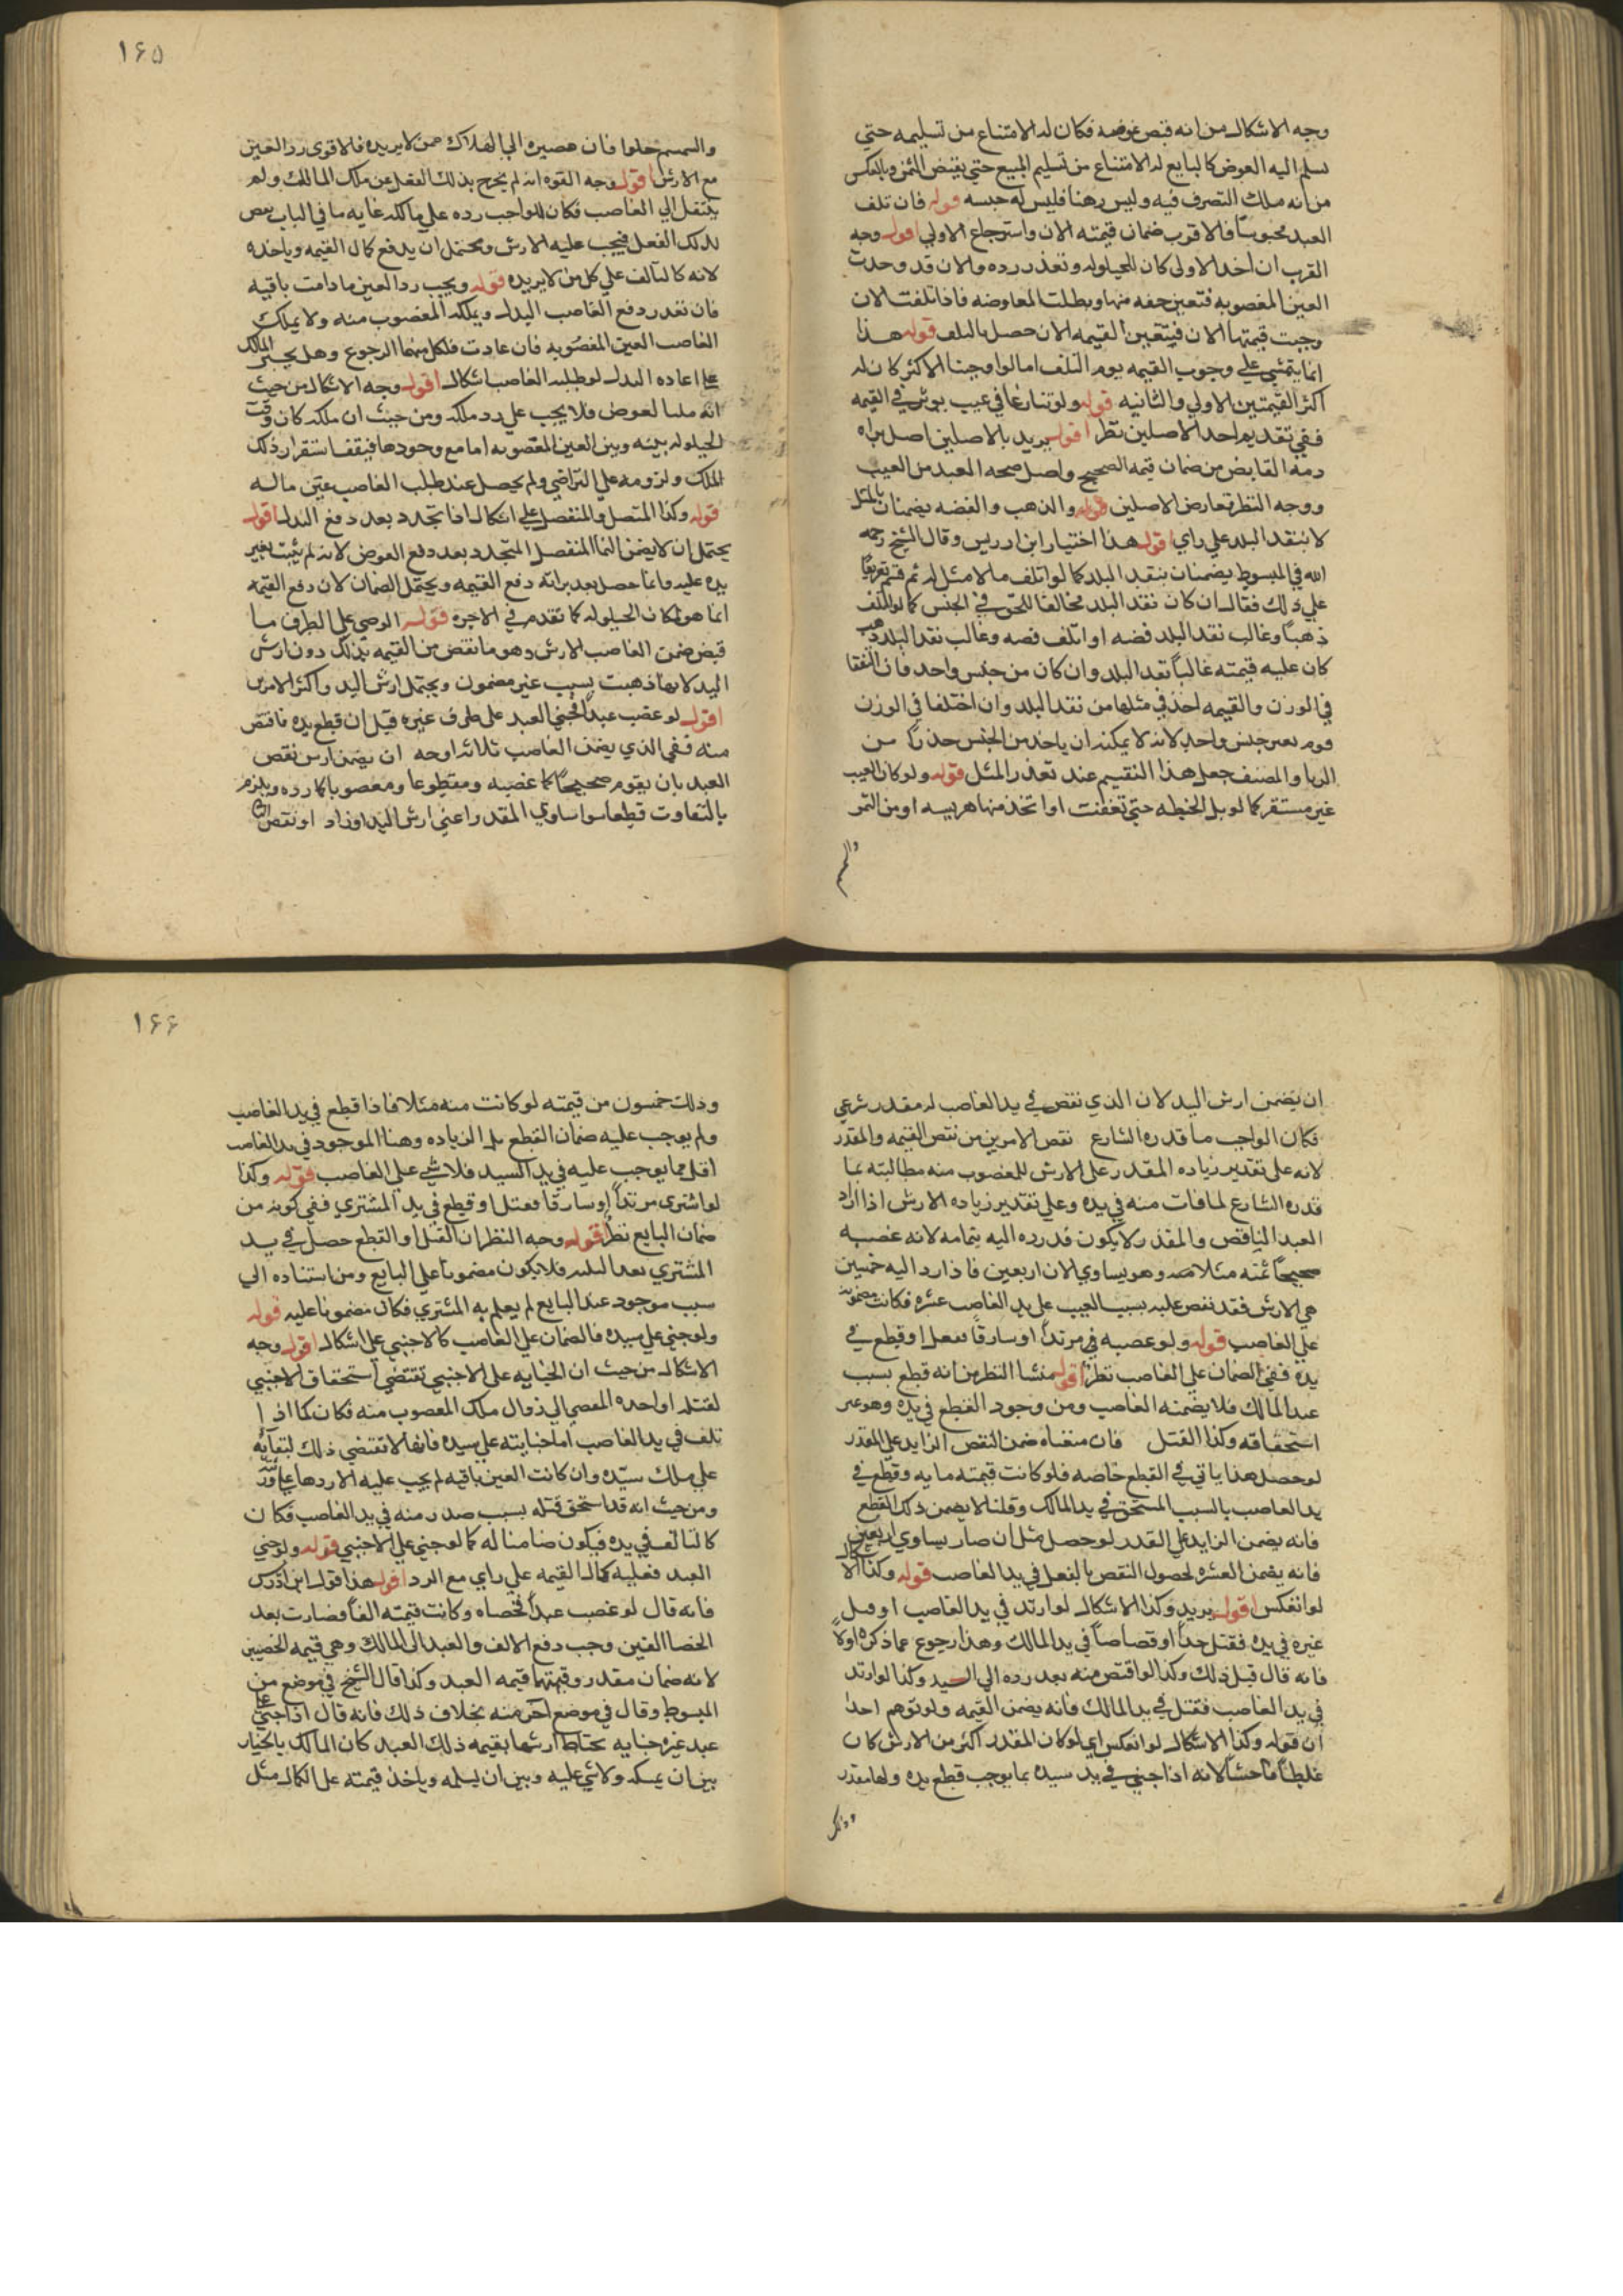 وجه الاشكال من انه قبض عوضه فكان له الامتناع من تسليمه حتي
تسلم اليه العوض كالبايع له الامتناع من تسليم المبيع حتي يقبض الثمن وبالعكس
من انه ملك التصرف فيه وليس رهنا فليس له حبسه قوله فان تلف
العبد محبوسا فالاقرب ضمان قيمته الان واسترجاع الاولي اقول وجه
القرب ان اخذ الاولي كان للحيلوله وتعذر رده والان قد وجدت
العين المغصوبه فتعين حقه منها وبطلت المعاوضه فاذا تلفت الان
وجبت قيمتها الان فيتعين القيمه الان حصل بالتلف قوله هذا
انما يتمشي علي وجوب القيمه يوم التلف اما لو اوجبنا الاكثر كان له
اكثر القيمتين الاولي والثانيه قوله ولو تنازعا في عيب يوثر في القيمه
ففي تقديم احد الاصلين نظر اقول يريد بالاصلين اصل براه
ذمه القابض من ضمان قيمه الصحيح واصل صحه العبد من العيب
ووجه النظر تعارض الاصلين قوله والذهب والفضه يضمنان بالمثل
لا بنقد البلد علي راي اقول هذا اختيار ابن ادريس وقال الشيخ رحمه
الله في المبسوط يضمنان بنقد البلد كما لو اتلف ما لا مثل له ثم
علي ذلك فقال ان كان نقد البلد مخالفا للحق في الجنس كما لو اتلف
ذهبا وغالب نقد البلد فضه او اتلف فضه وغالب نقد البلد ذهب
كان عليه قيمته غالبا نقد البلد وان كان من جنس واحد فان اتفقا
في الوزن والقيمه اخذ في مثلها من نقد البلد وان اختلفا في الوزن
قوم بغير جنس واحد لانه لا يمكنه ان ياخذ من الجنس حذرا من
الربا والمصنف جعل هذا التقسيم عند تعذر المثل قوله ولو كان العيب
غير مستقر كما لو بل الحنطه حتي تعفنت او اتخذ منها هريسه او من التمر
والسمسم
١۶۵
والسمسم حلوا فان مصيره الي الهلاك ممن لا يريده فالاقوي رد العين
مع الارش اقول وجه القوه انه لم يخرج بذلك الفعل عن ملك المالك ولم
ينتقل الي الغاصب فكان الواجب رده علي مالكه غايه ما في الباب نقص
بذلك الفعل فيجب عليه الارش ويحتمل ان يدفع كمال القيمه وياخذه
لانه كالتالف علي كل من لا يريده قوله ويجب رد العين ما دامت باقيه
فان تعذر دفع الغاصب البدل ويملكه المغصوب منه ولا يملك
الغاصب العين المغصوبه فان عادت فلكل منهما الرجوع وهل يجبر المالك
علي اعاده البدل لو طلبه الغاصب اشكال اقول وجه الاشكال من حيث
انه ملك العوض فلا يجب علي رد ملكه ومن حيث ان ملكه كان وقت
الحيلوله بينه وبين العين المغصوبه اما مع وجودها فيقف استقرار ذلك
الملك ولزومه علي التراضي ولم يحصل عند طلب الغاصب عين ماله
قوله وكذا المتصل والمنفصل علي اشكال اذا تجدد بعد دفع البدل اقول
يحتمل ان لا يضمن النما المنفصل المتجدد بعد دفع العوض لانه لم يثبت بغير
يده عليه وانما حصل بعد براته دفع القيمه ويحتمل الضمان لان دفع القيمه
انما هو لمكان الحيلوله كما تقدم في الاجره قوله علي الطرف ما
قبض ضمن الغاصب الارش وهو ما نقص من القيمه بذلك دون ارش
اليد لانها ذهبت بسبب غير مضمون ويحتمل ارش اليد واكثر الامرين
اقول لو غصب عبدا فجني العبد علي طرف غيره قيل ان قطع يده فاقتص
منه ففي الذي يضمن الغاصب ثلاثه اوجه ان يضمن ارش نقص
العبد بان يقوم صحيحا كما غصبه ومقطوعا ومغصوبا كما رده ويلزم
بالتفاوت قطعا سوا ساوي المقدر اعني ارش اليد او زاد او نقص
ان يضمن ارش اليد لان الذي نقص في يد الغاصب له مقدر شرعي
فكان الواجب ما قدره الشارع نقص الامرين من نقص القيمه والمقدر
لانه علي تقدير زياده المقدر علي الارش للمغصوب منه مطالبته بما
قدره الشارع لما فات منه في يده وعلي تقدير زياده الارش اذا اراد
العبد الناقص والمقدر لا يكون قد رده اليه بتمامه لانه غصبه
صحيحا ثمنه مثلا مايه وهو يساوي الان اربعين فاذا رد اليه خمسين
هي الارش فقد نقص عليه بسبب العيب علي يد الغاصب عشره فكانت مضمونه
علي الغاصب قوله ولو غصبه مرتدا او سارقا فقتل او قطع في
يده ففي الضمان علي الغاصب نظر اقول منشا النظر من انه قطع بسبب
عند المالك فلا يضمنه الغاصب ومن وجود القطع في يده وهو غير
استحقاقه وكذا القتل فان منعناه ضمن النقص الزايد علي المقدر
لو حصل هذا ياتي في القطع خاصه فلو كانت قيمته مايه وقطع في
يد الغاصب بالسبب المستحق في يد المالك وقلنا لا يضمن ذلك القطع
فانه يضمن الزايد علي القدر لو حصل مثل ان صار يساوي اربعين
فانه يضمن العشره لحصول النقص بالفعل في يد الغاصب قوله وكذا الاشكال
لو انعكس اقول يريد وكذا الاشكال لو ارتد في يد الغاصب او قتل
غيره في يده فقتل حدا او قصاصا في يد المالك وهذا رجوع عما ذكره اولا
فانه قال قبل ذلك وكذا لو اقتص منه بعد رده الي السيد وكذا لو ارتد
في يد الغاصب فقتل في يد المالك فانه يضمن القيمه ولو توهم احد
ان قوله وكذا الاشكال لو انعكس اي لو كان المقدر اكثر من الارش كان
غلطا فاحشا لانه اذا جني في يد سيده بما يوجب قطع يده ولها مقدر
وذلك
١۶۶
وذلك خمسون من قيمته لو كانت منه مثلا فاذا قطع في يد الغاصب
ولم يوجب عليه ضمان القطع بل الزياده وهنا الموجود في يد الغاصب
اقل مما يوجب عليه في يد السيد فلا شي علي الغاصب قوله وكذا
لو اشتري مرتدا او سارقا فقتل او قطع في يد المشتري ففي كونه من
ضمان البايع نظر اقول وجه النظر ان القتل او القطع حصل في يد
المشتري بعد فلا يكون مضمونا علي البايع ومن استناده الي
سبب موجود عند البايع لم يعلم به المشتري فكان مضمونا عليه قوله
ولو جني علي سيده فالضمان علي الغاصب كالاجنبي علي اشكال اقول وجه
الاشكال من حيث ان الجنايه علي الاجنبي تقتضي استحقاق الاجنبي
لقتله او اخذه المفضي الي زوال ملك المغصوب منه فكان كما اذا
تلف في يد الغاصب اما جنايته علي سيده فانها لا تقتضي ذلك لبقايه
علي ملك سيده وان كانت العين باقيه لم يجب عليه الا ردها علي
ومن حيث انه قد استحق قتله بسبب صدر منه في يد الغاصب فكان
كالتالف في يده فيكون ضامنا له كما لو جني علي الاجنبي قوله ولو جني
العبد فعليه كمال القيمه علي راي مع الرد اقول هذا قول ابن ادريس
فانه قال لو غصب عبدا فخصاه وكانت قيمته الفا فصارت بعد
الخصا الفين وجب دفع الالف والعبد الي المالك وهي قيمه الخصيتين
لانه ضمان مقدر وقيمتهما قيمه العبد وكذا قال الشيخ في موضع من
المبسوط وقال في موضع اخر منه بخلاف ذلك فانه قال اذا جني علي
عبد غيره جنايه تحتاط ارشها بقيمه ذلك العبد كان المالك بالخيار
بين ان يمسكه ولا شي عليه وبين ان يسلمه وياخذ قيمته علي الكمال مثل